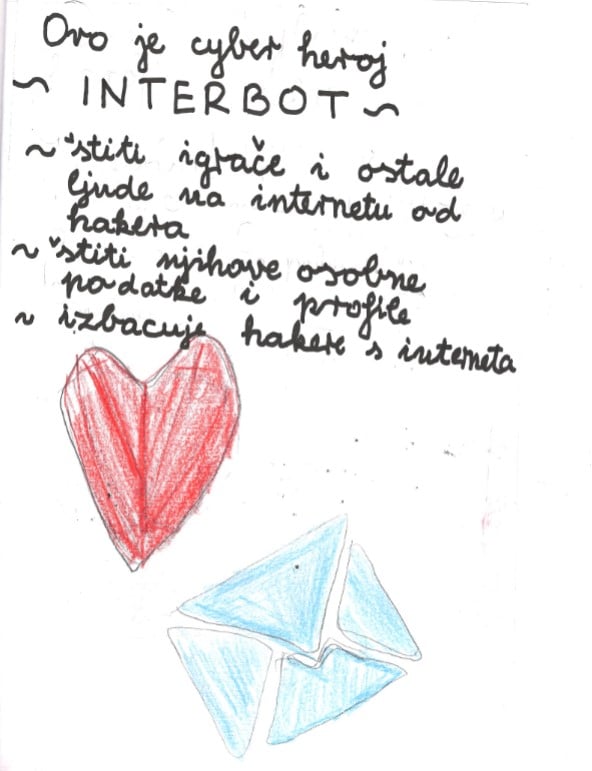 Ovo je cyber heroj
~ INTERBOT ~
~ štiti igrače i ostale
ljude na internetu od
hakera
~ štiti njihove osobne
podatke i profile
~ izbacuje hakere s interneta